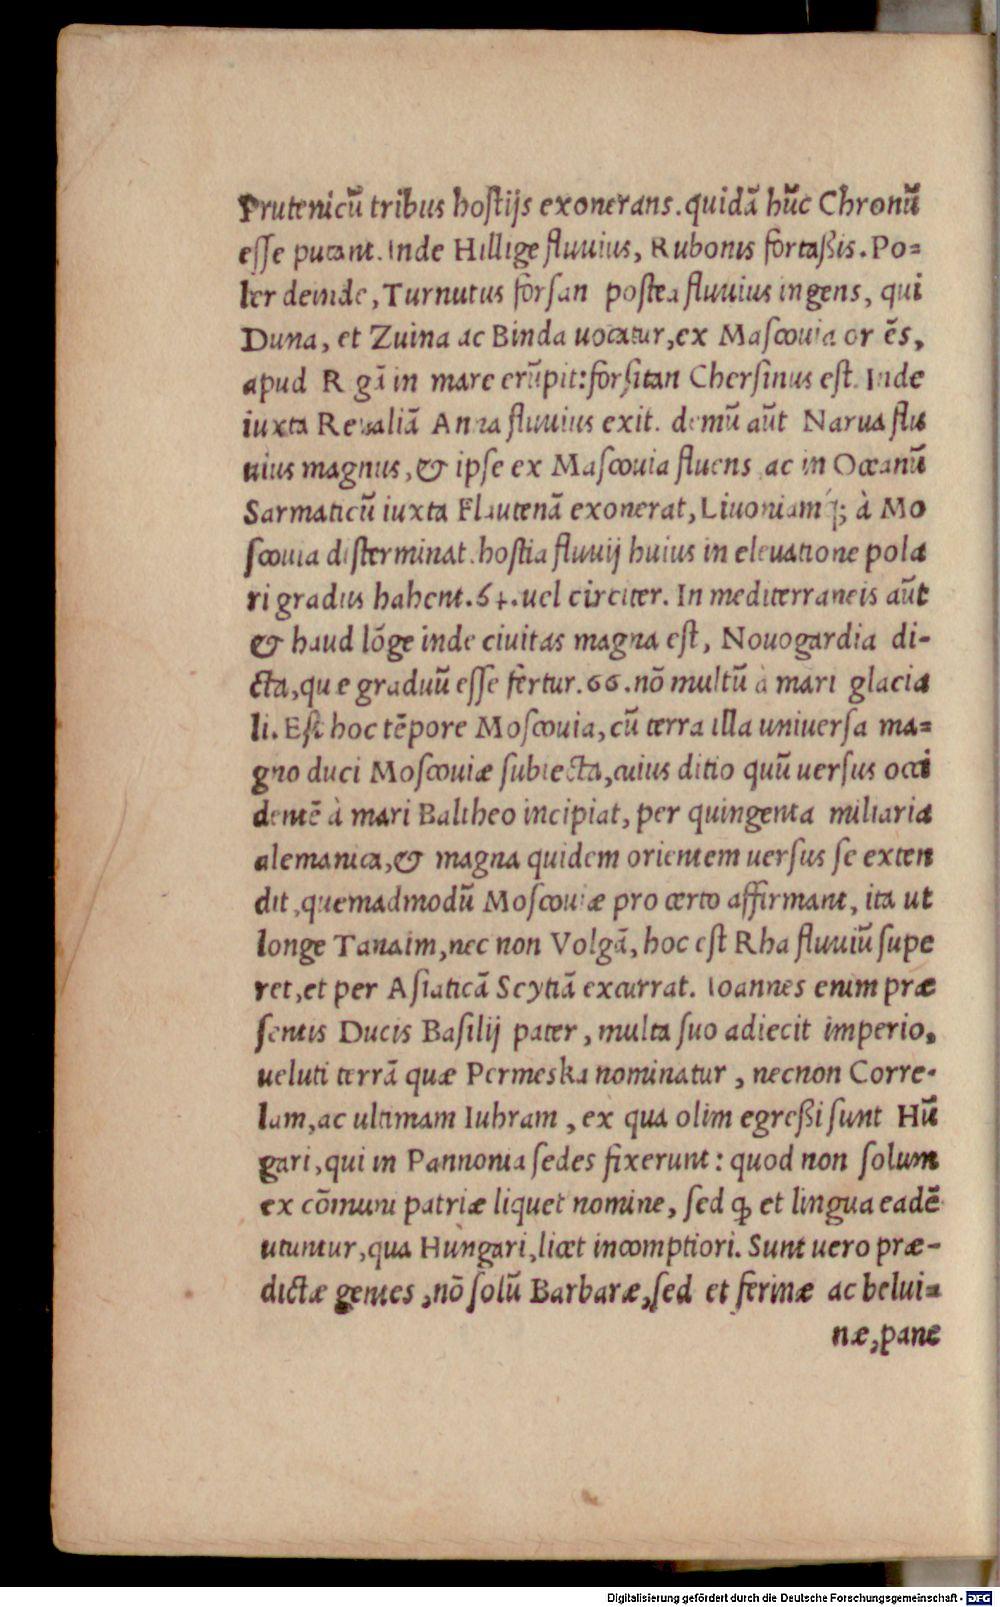 Prutenicū tribus hoſtijs exonerans. quidā hūc Chronū
eſſe putant. Inde Hillige fluuius, Rubonis fortaßis. Po=
ler deinde, Turnutus forſan poſtea fluuius ingens, qui
Duna, et Zuina ac Binda uocatur, ex Maſcouia or ēs,
apud R gā in mare erūpit: forſitan Cherſinus eſt. Inde
iuxta Reualiā Anna fluuius exit. demū aūt Narua flu
uius magnus, & ipſe ex Maſcouia fluens ac in Oceanū
Sarmaticū iuxta Flautenā exonerat, Liuoniamq́; à Mo
ſcouia diſterminat. hoſtia fluuij huius in eleuatione pola
ri gradus habent. 64. uel circiter. In mediterraneis aūt
& haud lōge inde ciuitas magna eſt, Nouogardia di-
cta, quæ graduū eſſe fertur. 66. nō multū à mari glacia
li. Eſt hoc tēpore Moſcouia, cū terra illa uniuerſa ma=
gno duci Moſcouiæ ſubiecta, cuius ditio quū uerſus occi
dentē à mari Baltheo incipiat, per quingenta miliaria
alemanica, & magna quidem orientem uerſus ſe exten
dit, quemadmodū Moſcouiæ pro certo affirmant, ita ut
longe Tanaim, nec non Volgā, hoc eſt Rha fluuiū ſupe
ret, et per Aſiaticā Scytiā excurrat. Ioannes enim præ
ſentis Ducis Baſilij pater, multa ſuo adiecit imperio,
ueluti terrā quæ Permeska nominatur, necnon Corre-
lam, ac ultimam Iuhram, ex qua olim egreßi ſunt Hū
gari, qui in Pannonia ſedes fixerunt: quod non ſolum
ex cōmuni patriæ liquet nomine, ſed ꝙ et lingua eadē
utuntur, qua Hungari, licet incomptiori. Sunt uero præ-
dictæ gentes, nō ſolū Barbaræ, ſed et ferinæ ac belui=
næ, pane
Digitalisierung gefördert durch die Deutsche Forschungsgemeinschaft - DFG